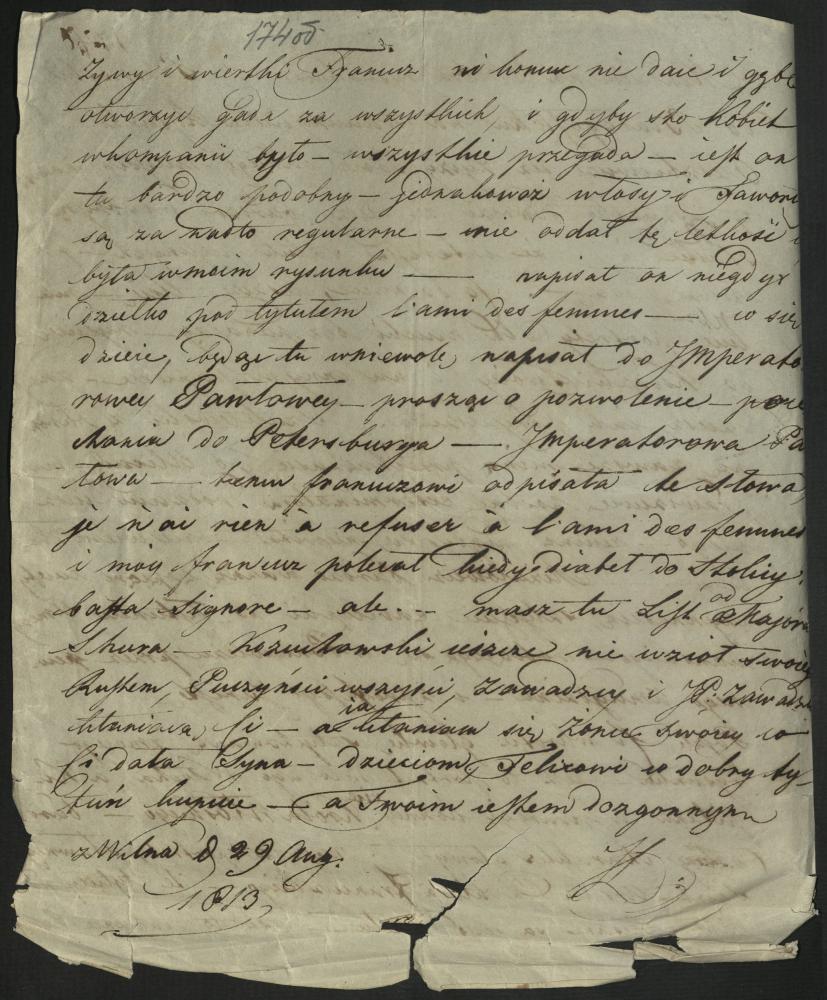 17405
żywy i wierthi Francuz ni komu nie daie i gęb
otworzyć gada za wszystkich, i gdyby sto kobiet
whompanii było – wszystkie przegada – iest on
tu bardzo podobny – jednakowoż włosy i Fawori
są za nadto regularne – nie oddał tę letkość i
była wmoim rysunku —— napisał on niegdyś
dziełko pod tytułem l'ami des femmes —— co się
dzieie, będąc tu wniewoli, napisał do Jmperato
rowey Pawłowey – prosząc o pozwolenie – poze
skania do Petersburga —— Jmperatorowa Pa
łowa —— temu francuzowi odpisała te słowa,
je n'ai rien à refuser à l'ami des femmes
i móy francuz poleciał kiedy diabeł do Stolicy.
basta Signore – ale. – masz tu List od Majora
Skura – Kozuchowski ieszcze nie wziół swoiey
Rustem, Puczyńsci wszyscy, Zawadzcy i JP: Zawadz
kłaniaią, Ci – a ia kłaniam się Żonie Twoiey co
Ci dała Syna – dzieciom, Felixowi co dobry ty-
tuń kupuie – a Twoim iestem dozgonnym
z Wilna d 29 Aug.
1813